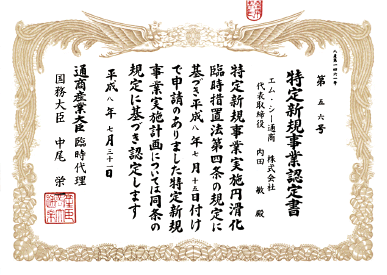 第五六号
特定新規事業認定書
エム・シー通商 株式会社
代表取締役 内田 敏 殿
特定新規事業実施円滑化
臨時措置法第四条の規定に
基づき平成八年七月十五日付け
で申請のありました特定新規
事業実施計画については同条の
規定に基づき認定します
平成八年七月三十一日
通商産業大臣 臨時代理
国務大臣 中尾 栄